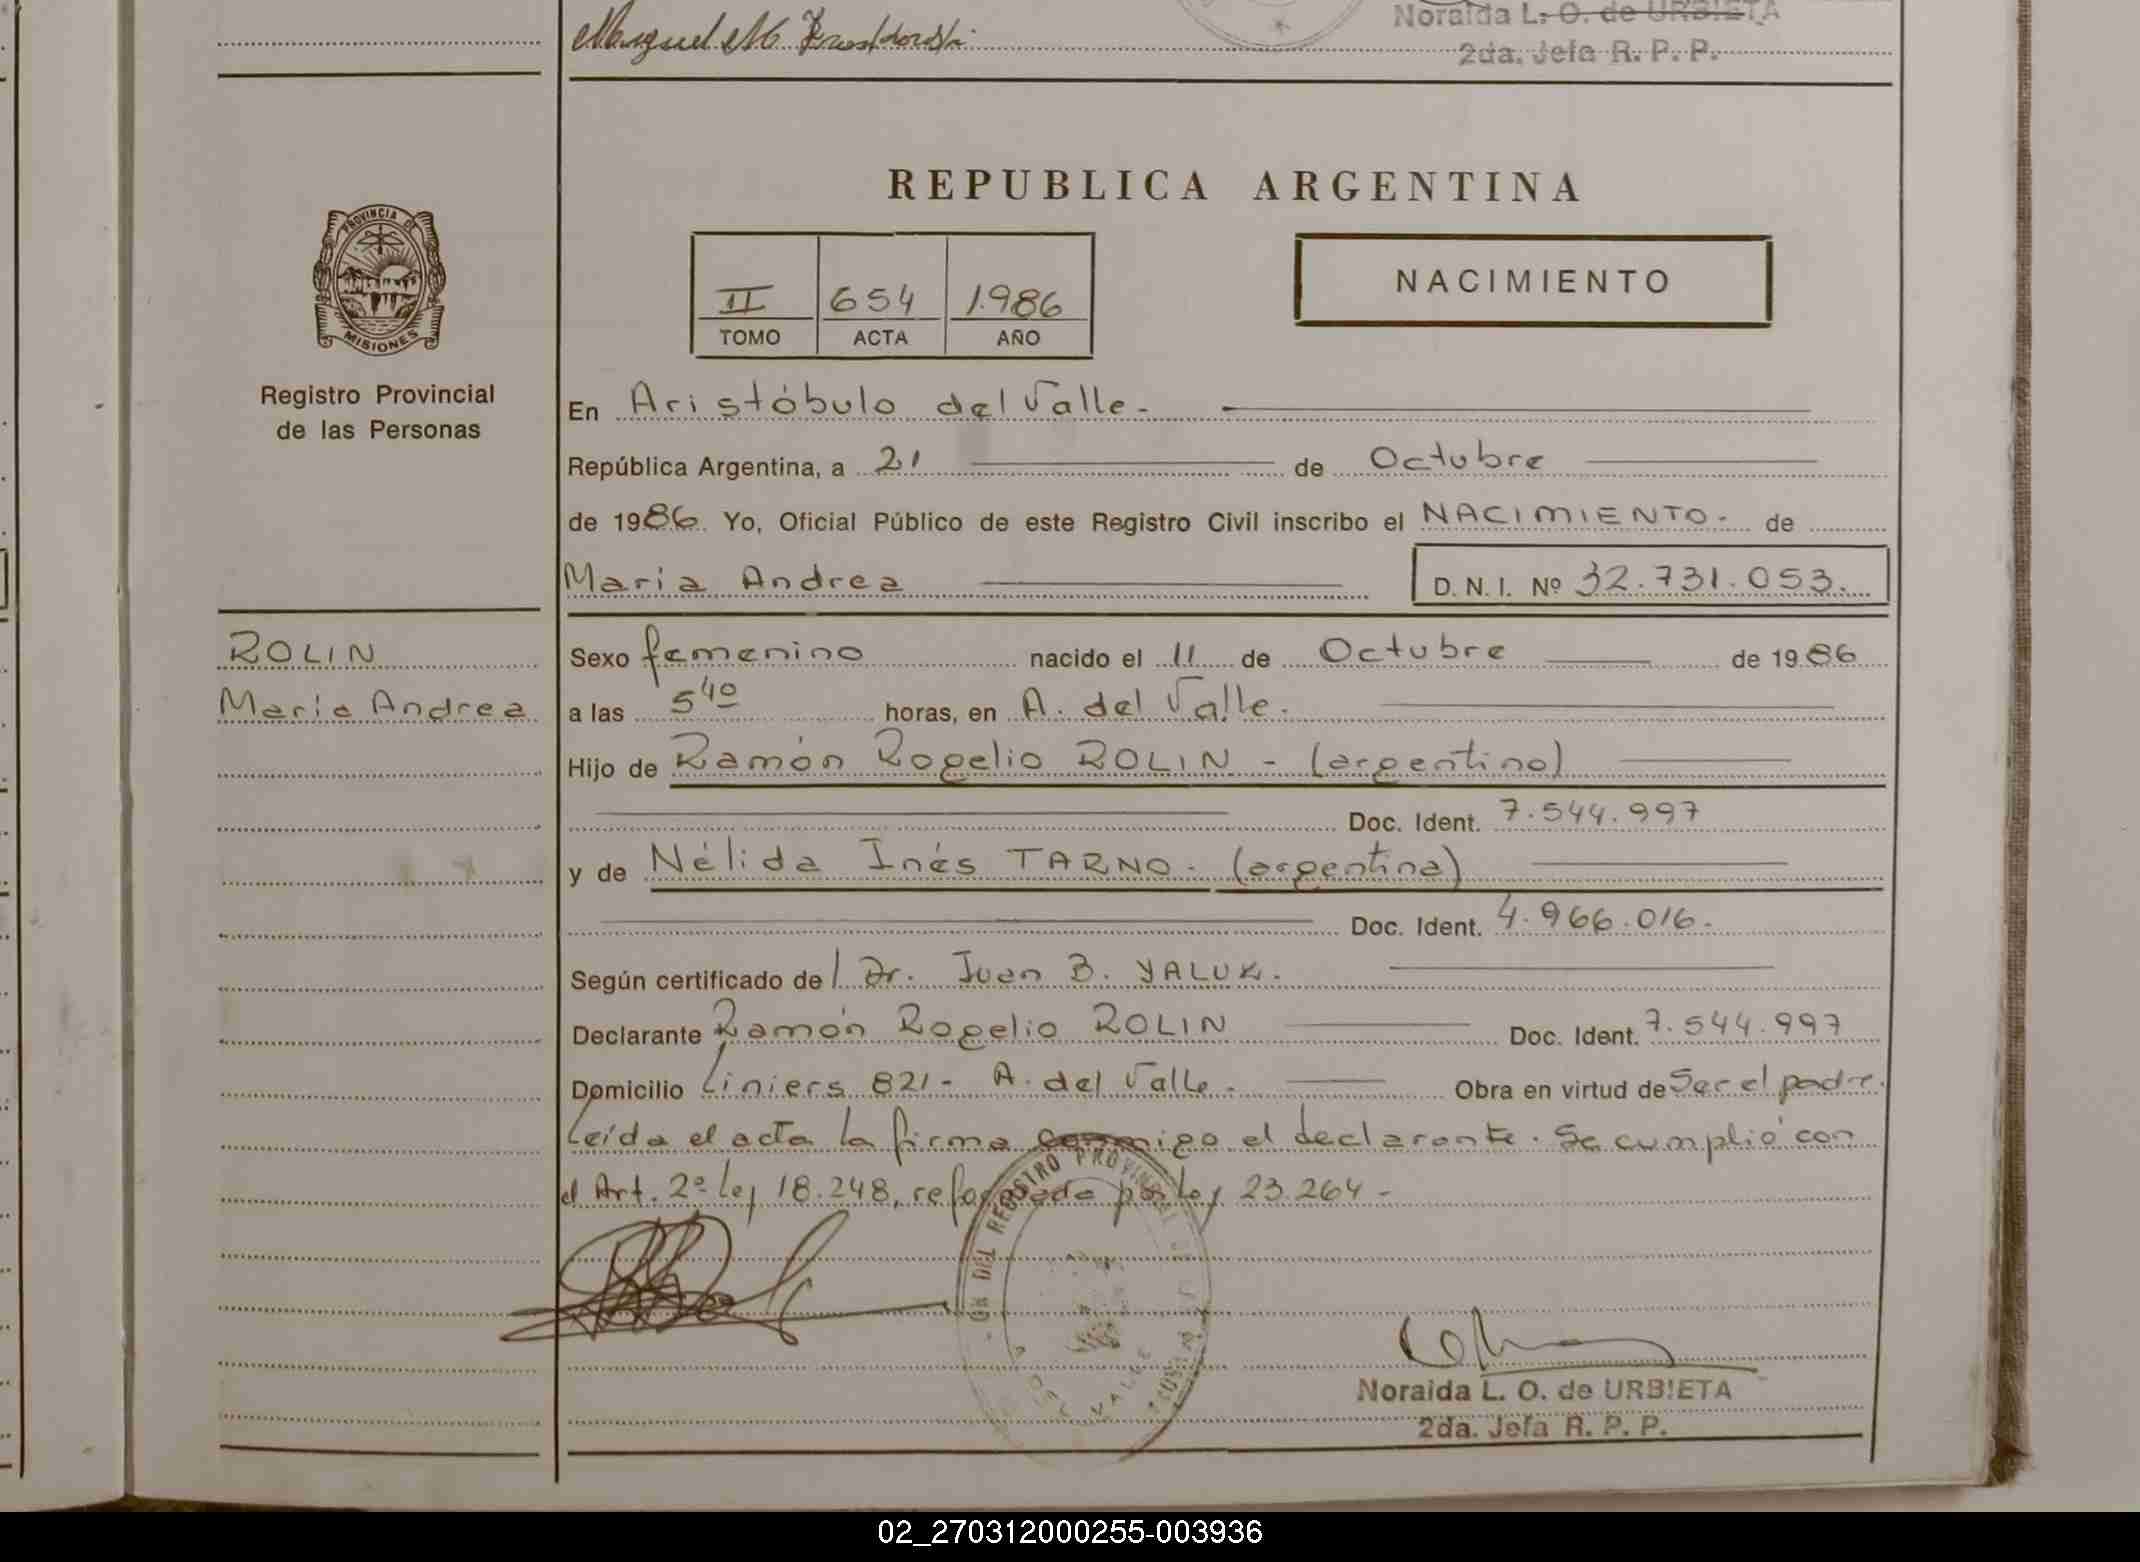 Miguel M.
Noraida L. O. de URBIETA
2da. Jefa R. P. P.
REPUBLICA ARGENTINA
PROVINCIA DE
MISIONES
II 654 1.986
TOMO ACTA AÑO
NACIMIENTO
Registro Provincial
de las Personas
En Aristóbulo del Valle.-
República Argentina, a 21 de Octubre
de 1986. Yo, Oficial Público de este Registro Civil inscribo el NACIMIENTO.- de
María Andrea D. N. I. Nº 32.731.053.
ROLIN
María Andrea
Sexo femenino nacido el 11 de Octubre de 1986
a las 5 40 horas, en A. del Valle.
Hijo de Ramón Rogelio ROLIN - (argentino)
Doc. Ident. 7.544.997
y de Nélida Inés TARNO.- (argentina)
Doc. Ident. 4.966.016.
Según certificado de l Dr. Juan B. YALUK.
Declarante Ramón Rogelio ROLIN Doc. Ident. 7.544.997
Domicilio Liniers 821- A. del Valle.- Obra en virtud de Ser el padre.
Leída el acta la firma conmigo el declarante. Se cumplió con
el Art. 2º ley 18.248, reformada por ley 23.264 -
DEL REGISTRO PROVINCIAL DE LAS PERSONAS
A. DEL VALLE
Noraida L. O. de URBIETA
2da. Jefa R. P. P.
02_270312000255-003936